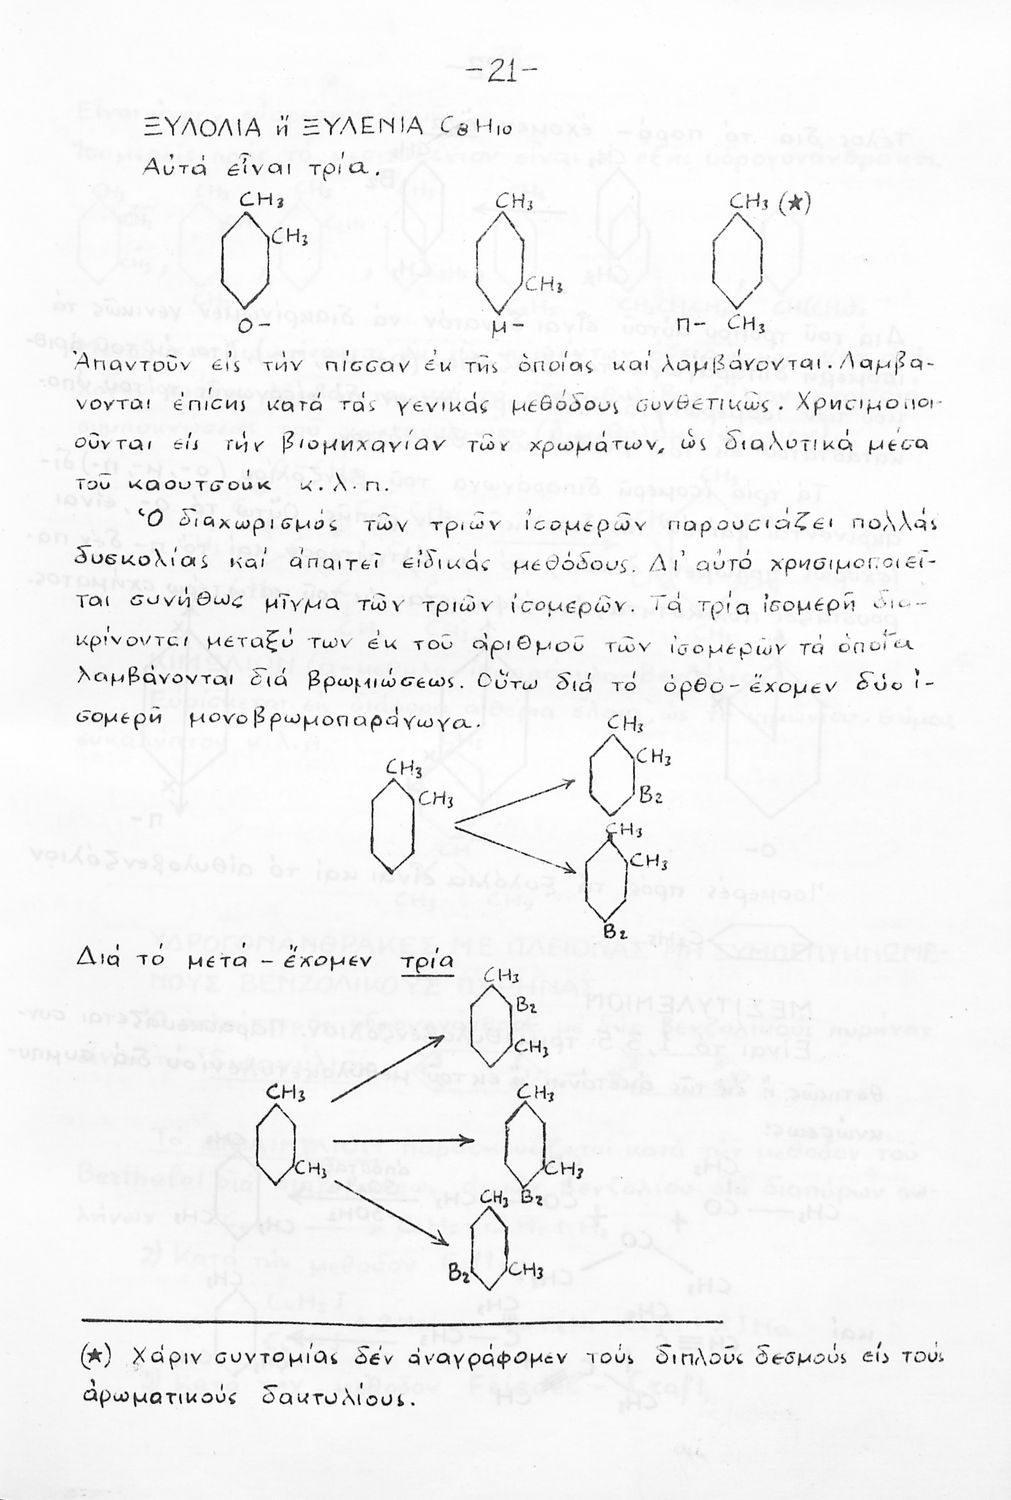 -21-
ΞΥΛΟΛΙΑ ἤ ΞΥΛΕΝΙΑ C8H10
Αὐτά εἶναι τρία.
CH3 CH3 CH3 (★)
CH3
CH3
Ο- μ- π- CH3
Ἀπαντοῦν εἰς τήν πίσσαν ἐκ τῆς ὁποίας καί λαμβάνονται. Λαμβά-
νονται ἐπίσης κατά τάς γενικάς μεθόδους συνθετικῶς. Χρησιμοποι-
οῦνται εἰς τήν βιομηχανίαν τῶν χρωμάτων, ὡς διαλυτικά μέσα
τοῦ καουτσούκ κ.λ.π.
Ὁ διαχωρισμός τῶν τριῶν ἰσομερῶν παρουσιάζει πολλάς
δυσκολίας καί ἀπαιτεῖ εἰδικάς μεθόδους. Δι' αὐτό χρησιμοποιεῖ-
ται συνήθως μῖγμα τῶν τριῶν ἰσομερῶν. Τά τρία ἰσομερῆ δια-
κρίνονται μεταξύ των ἐκ τοῦ ἀριθμοῦ τῶν ἰσομερῶν τά ὁποῖα
λαμβάνονται διά βρωμιώσεως. Οὕτω διά τό ὀρθο-ἔχομεν δύο ἰ-
σομερῆ μονοβρωμοπαράγωγα.
CH3
CH3
Br
CH3
CH3
CH3
CH3
Br
Διά τό μετά - ἔχομεν τρία
CH3
Br
CH3
CH3
CH3
CH3
CH3
Br
CH3
Br CH3
(★) Χάριν συντομίας δέν ἀναγράφομεν τούς διπλοῦς δεσμούς εἰς τούς
ἀρωματικούς δακτυλίους.